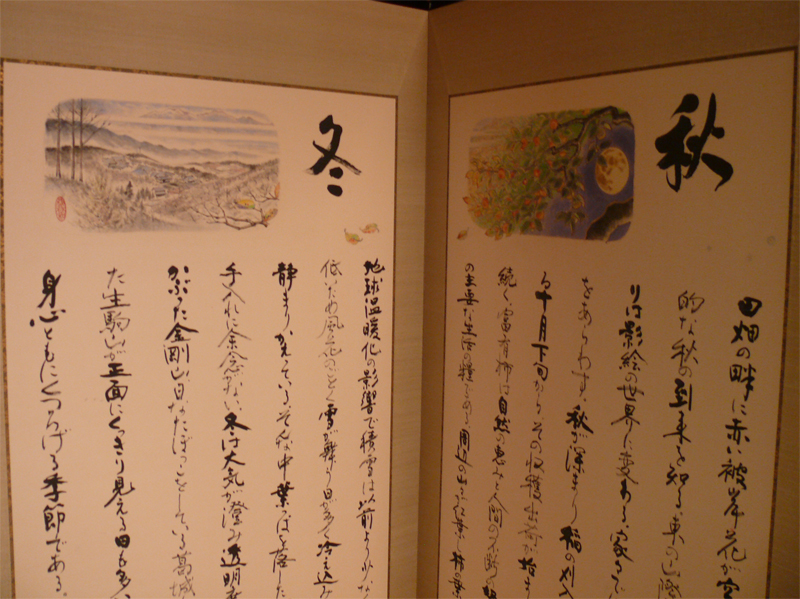 秋
田畑の畔に赤い彼岸花が空
的な秋の到来を知る。東の山際
りは影絵の世界に変わる。家々で
をあらわす。秋が深まり稲の刈入
る十月下旬からその収穫出荷が始ま
続く。富有柿は自然の恵みと人間の不断の
の主要な生活の糧となり、周辺の山々
冬
地球温暖化の影響で積雪は以前より少な
低いため風花のごとく雪が舞う日が多く冷え込み
静まりかえっている。そんな中、葉っぱを落した
手入れに余念がない。冬は大気が澄み透明度
かぶった金剛山、日なたぼっこをしている葛城
た生駒山が正面にくっきり見える日も多い
身心ともにくつろげる季節である。